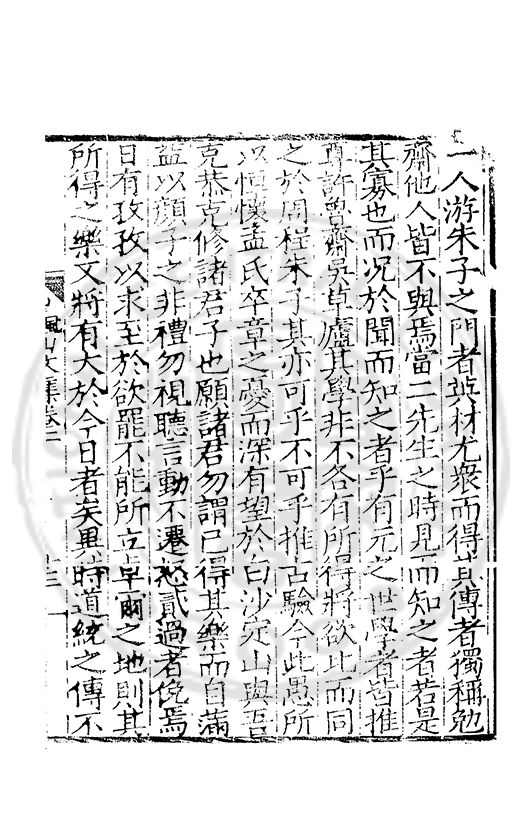 一人游朱子之門者英材尤衆而得其傳者獨稱勉
齋他人皆不與焉當二先生之時見而知之者若是
其寡也而况於聞而知之者乎有元之世學者皆推
尊許魯齋吳草廬其學非不各有所得將欲比而同
之於周程朱子其亦可乎不可乎推古驗今此愚所
以恒懷孟氏卒章之憂而深有望於白沙定山與吾
克恭克修諸君子也願諸君勿謂已得其樂而自滿
益以顔子之非禮勿視聽言動不遷怒貳過者俛焉
日有孜孜以求至於欲罷不能所立卓爾之地則其
所得之樂又將有大於今日者矣異時道統之傳不
風山文集卷二